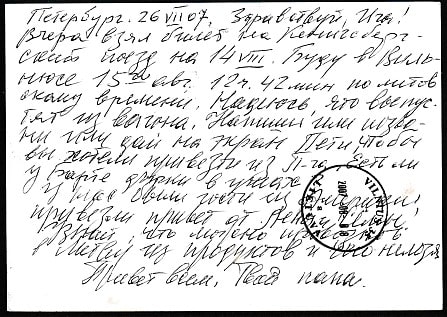 Петербург. 26 VII 07. Здравствуй, Ига!
Вчера взял билет на Кенигсберг-
ский поезд на 14 VIII. Буду в Виль-
нюсе 15го авг. 12ч. 42мин по литов
скому времени. Надеюсь, что выпус-
тят из вагона. Напиши или позво-
ни или дай на экран Пети, что бы
вы хотели привезти из П-га. Есть ли
у Барте друзья в
У нас были гости из
привезли привет от
Узнай, что можно привозить
в Литву из продуктов и что нельзя
Привет всем, Твой папа.
VILNIUS
2007-08-